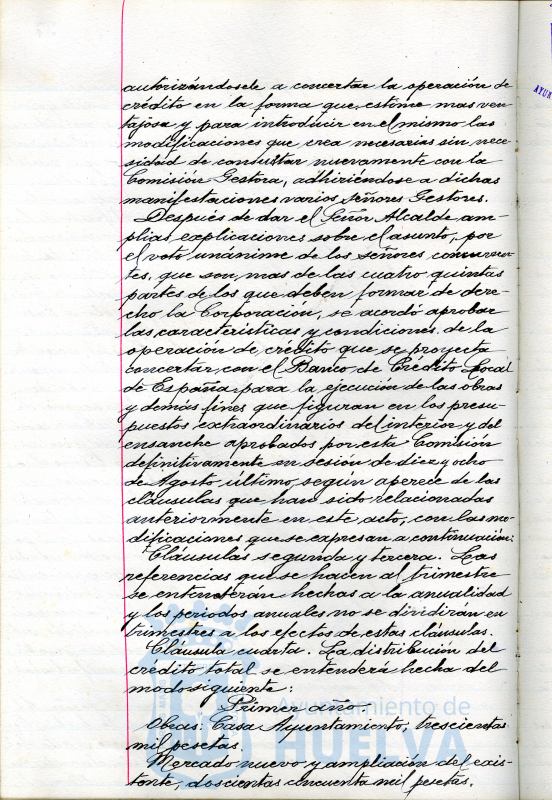 autorizándosele a concertar la operación de
crédito en la forma que estime mas ven-
tajosa y para introducir en el mismo las
modificaciones que crea necesarias sin nece-
sidad de consultar nuevamente con la
Comisión Gestora, adhiriéndose a dichas
manifestaciones varios Señores Gestores.
Después de dar el Señor Alcalde am-
plias explicaciones sobre el asunto, por
el voto unánime de los señores concurren-
tes, que son mas de las cuatro quintas
partes de los que deben formar de dere-
cho la Corporación, se acordó aprobar
las características y condiciones de la
operación de crédito que se proyecta
concertar con el Banco de Crédito Local
de España para la ejecución de las obras
y demás fines que figuran en los presu-
puestos extraordinarios del interior y del
ensanche aprobados por esta Comisión
definitivamente en sesión de diez y ocho
de Agosto último según aparece de las
cláusulas que han sido relacionadas
anteriormente en este acto, con las mo-
dificaciones que se expresan a continuación:
Cláusulas segunda y tercera. Las
referencias que se hacen al trimestre
se entenderán hechas a la anualidad
y los periodos anuales no se dividirán en
trimestres a los efectos de estas cláusulas.
Cláusula cuarta. La distribución del
crédito total se entenderá hecha del
modo siguiente:
Primer año
Obras: Casa Ayuntamiento, trescientas
mil pesetas.
Mercado nuevo y ampliación del exis-
tente, doscientas cincuenta mil pesetas.
Ayuntamiento de
HUELVA
AYUN